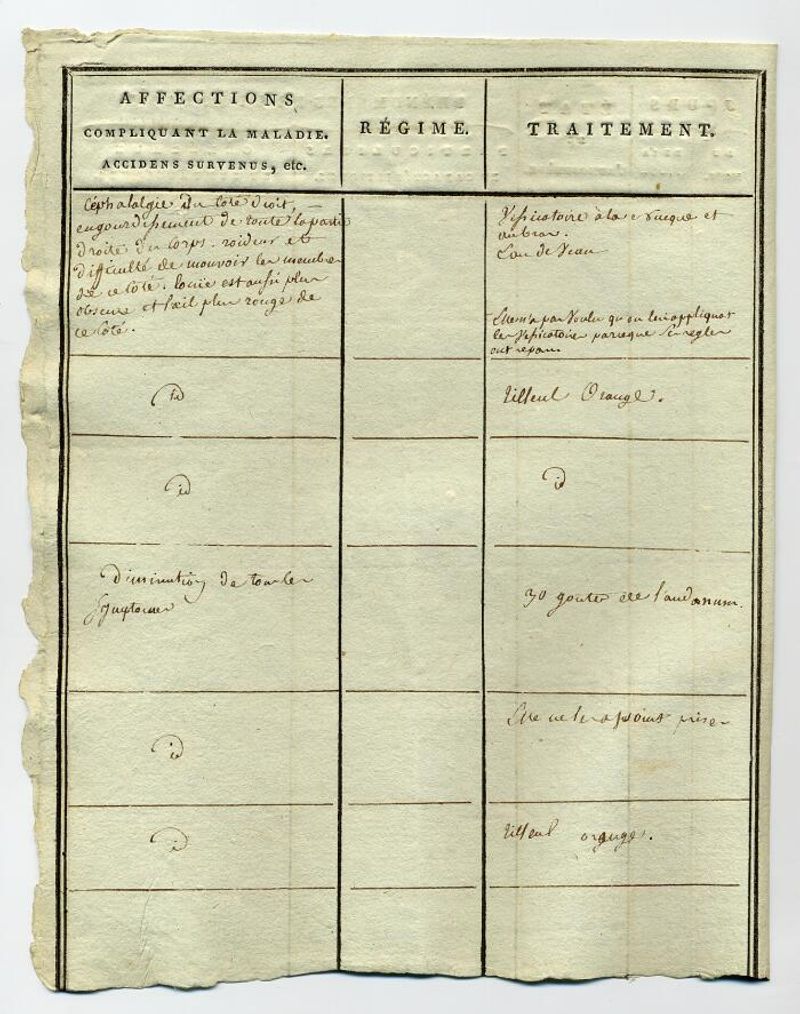 AFFECTIONS
COMPLIQUANT LA MALADIE.
ACCIDENS SURVENUS, etc.
RÉGIME.
TRAITEMENT.
Céphalalgie du Coté droit,
engourdissement de toute la partie
droite du Corps. roideur et
difficulté de mouvoir les membres
de ce Coté. l'ouïe est aussi plus
obscure et l'œil plus rouge de
ce Coté.
Vessicatoire à la nucque et
au bras.
Eau de Veau
Elle n'a pas Voulu qu'on lui appliquat
les Vessicatoire parceque ses regles
ont reparu
id
tilleul Orangé.
id
id
Diminution de tous les
Symptomes
30 goutes de laudanum.
id
Elle ne les a point prises
id
tilleul orangé.